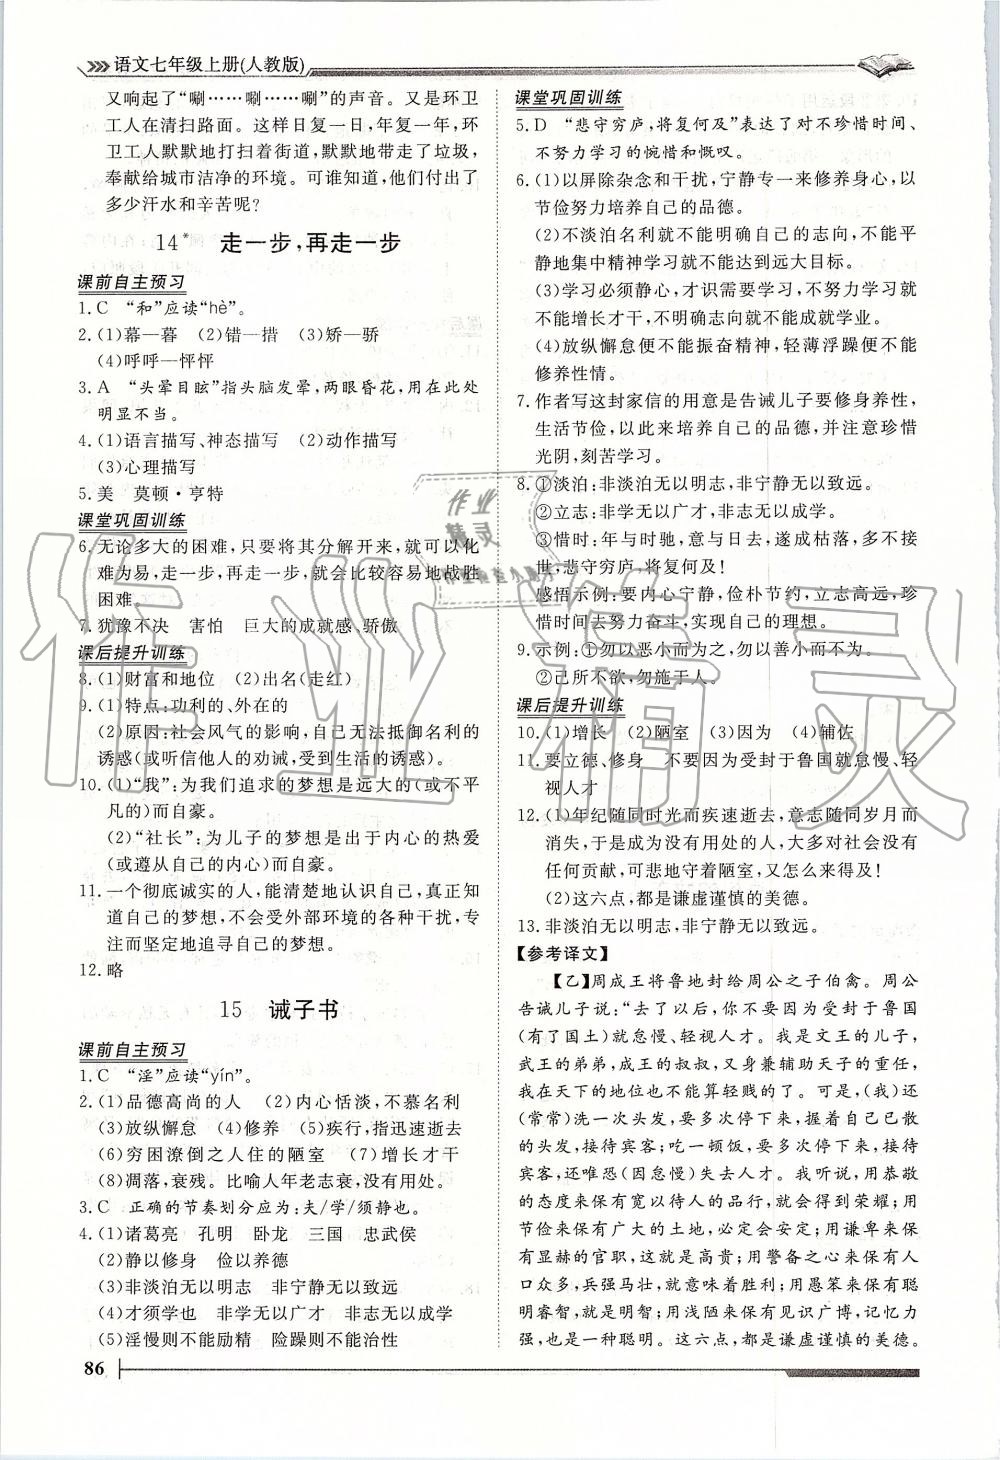 语文七年级上册(人教版)
又响起了“唰……唰……唰”的声音。又是环卫
工人在清扫路面。这样日复一日,年复一年,环
卫工人默默地打扫着街道,默默地带走了垃圾,
奉献给城市洁净的环境。可谁知道,他们付出了
多少汗水和辛苦呢?
14* 走一步,再走一步
课前自主预习
1.C “和”应读“hè”。
2.(1)幕—暮 (2)错—措 (3)矫—骄
(4)呼呼—怦怦
3.A “头晕目眩”指头脑发晕,两眼昏花,用在此处
明显不当。
4.(1)语言描写、神态描写 (2)动作描写
(3)心理描写
5.美 莫顿·亨特
课堂巩固训练
6.无论多大的困难,只要将其分解开来,就可以化
难为易,走一步,再走一步,就会比较容易地战胜
困难。
7.犹豫不决 害怕 巨大的成就感、骄傲
课后提升训练
8.(1)财富和地位 (2)出名(走红)
9.(1)特点:功利的、外在的
(2)原因:社会风气的影响,自己无法抵御名利的
诱惑(或听信他人的劝诫,受到生活的诱惑)。
10.(1)“我”:为我们追求的梦想是远大的(或不平
凡的)而自豪。
(2)“社长”:为儿子的梦想是出于内心的热爱
(或遵从自己的内心)而自豪。
11.一个彻底诚实的人,能清楚地认识自己,真正知
道自己的梦想,不会受外部环境的各种干扰,专
注而坚定地追寻自己的梦想。
12.略
15 诫子书
课前自主预习
1.C “淫”应读“yín”。
2.(1)品德高尚的人 (2)内心恬淡,不慕名利
(3)放纵懈怠 (4)修养 (5)疾行,指迅速逝去
(6)穷困潦倒之人住的陋室 (7)增长才干
(8)凋落,衰残。比喻人年老志衰,没有用处。
3.C 正确的节奏划分应为:夫/学/须静也。
4.(1)诸葛亮 孔明 卧龙 三国 忠武侯
(2)静以修身 俭以养德
(3)非淡泊无以明志 非宁静无以致远
(4)才须学也 非学无以广才 非志无以成学
(5)淫慢则不能励精 险躁则不能治性
课堂巩固训练
5.D “悲守穷庐,将复何及”表达了对不珍惜时间、
不努力学习的惋惜和慨叹。
6.(1)以屏除杂念和干扰,宁静专一来修养身心,以
节俭努力培养自己的品德。
(2)不淡泊名利就不能明确自己的志向,不能平
静地集中精神学习就不能达到远大目标。
(3)学习必须静心,才识需要学习,不努力学习就
不能增长才干,不明确志向就不能成就学业。
(4)放纵懈怠便不能振奋精神,轻薄浮躁便不能
修养性情。
7.作者写这封家信的用意是告诫儿子要修身养性,
生活节俭,以此来培养自己的品德,并注意珍惜
光阴,刻苦学习。
8.①淡泊:非淡泊无以明志,非宁静无以致远。
②立志:非学无以广才,非志无以成学。
③惜时:年与时驰,意与日去,遂成枯落,多不接
世,悲守穷庐,将复何及!
感悟示例:要内心宁静、俭朴节约,立志高远,珍
惜时间去努力奋斗,实现自己的理想。
9.示例:①勿以恶小而为之,勿以善小而不为。
②己所不欲,勿施于人。
课后提升训练
10.(1)增长 (2)陋室 (3)因为 (4)辅佐
11.要立德、修身 不要因为受封于鲁国就怠慢、轻
视人才
12.(1)年纪随同时光而疾速逝去,意志随同岁月而
消失,于是成为没有用处的人,大多对社会没有
任何贡献,可悲地守着陋室,又怎么来得及!
(2)这六点,都是谦虚谨慎的美德。
13.非淡泊无以明志,非宁静无以致远。
【参考译文】
【乙】周成王将鲁地封给周公之子伯禽。周公
告诫儿子说:“去了以后,你不要因为受封于鲁国
(有了国土)就怠慢、轻视人才。我是文王的儿子,
武王的弟弟,成王的叔叔,又身兼辅助天子的重任,
我在天下的地位也不能算轻贱的了。可是,(我)还
(常常)洗一次头发,要多次停下来,握着自己已散
的头发,接待宾客;吃一顿饭,要多次停下来,接待
宾客,还唯恐(因怠慢)失去人才。我听说,用恭敬
的态度来保有宽以待人的品行,就会得到荣耀;用
节俭来保有广大的土地,必定会安定;用谦卑来保
有显赫的官职,这就是高贵;用警备之心来保有人
口众多,兵强马壮,就意味着胜利;用愚笨来保有聪
明睿智,就是明智;用浅陋来保有见识广博,记忆力
强,也是一种聪明。这六点,都是谦虚谨慎的美德。
86
作业精灵
作业
精灵